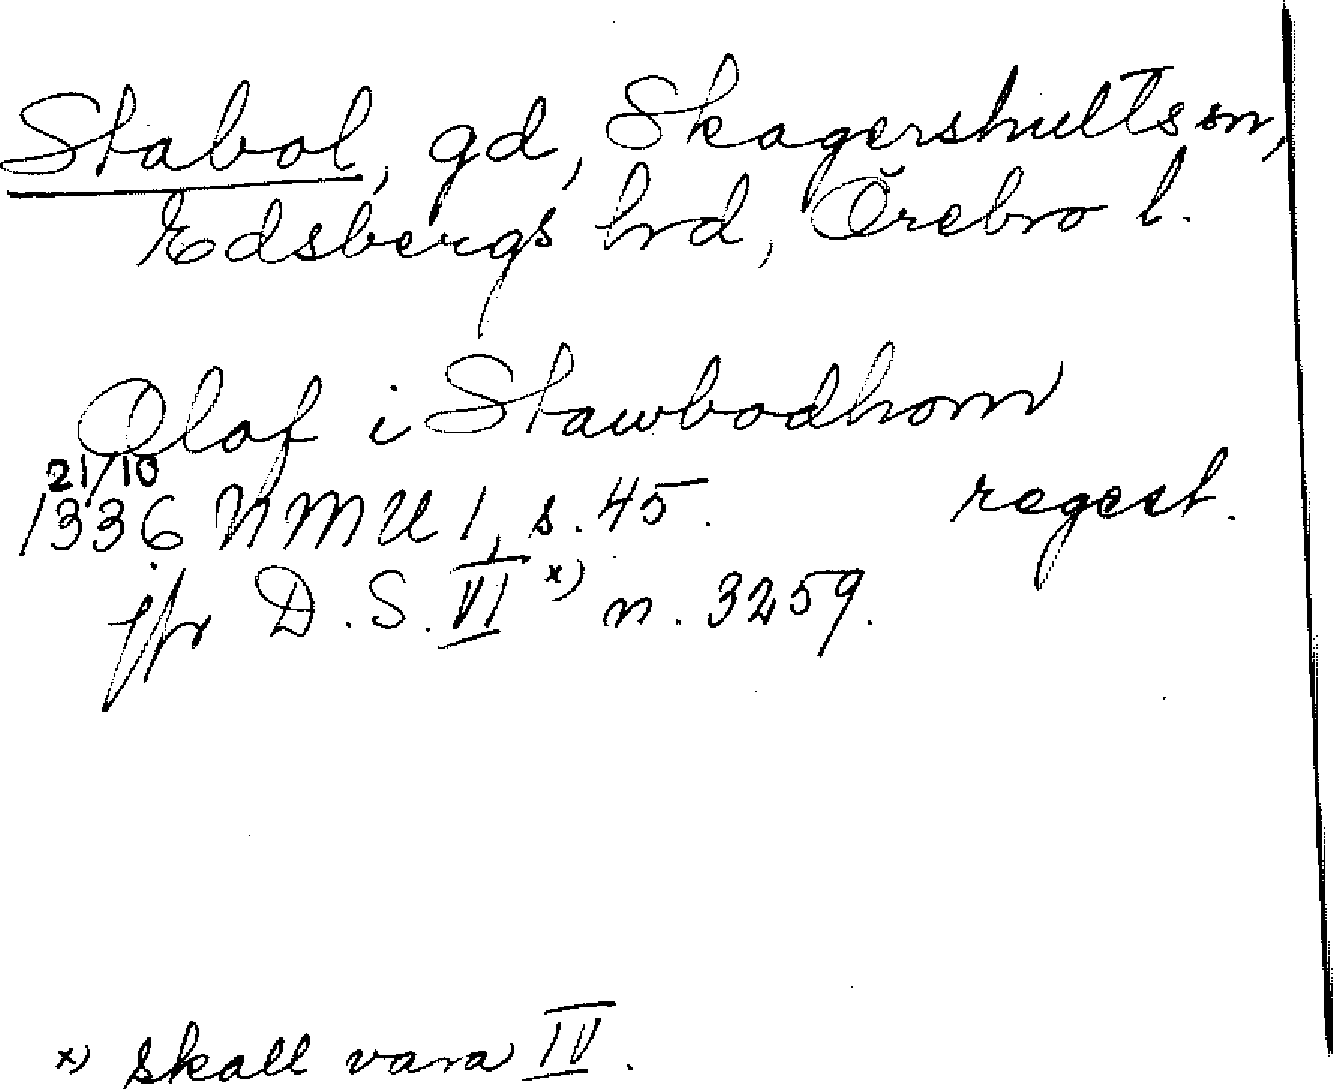 Stabol, gd, Skagershults sn,
Edsbergs hrd, Örebro l.
Olaf i Stawbodhom
21/10
1336 NMU 1, s. 45. regest.
jfr D. S. VI x) n. 3259.
x) skall vara IV.